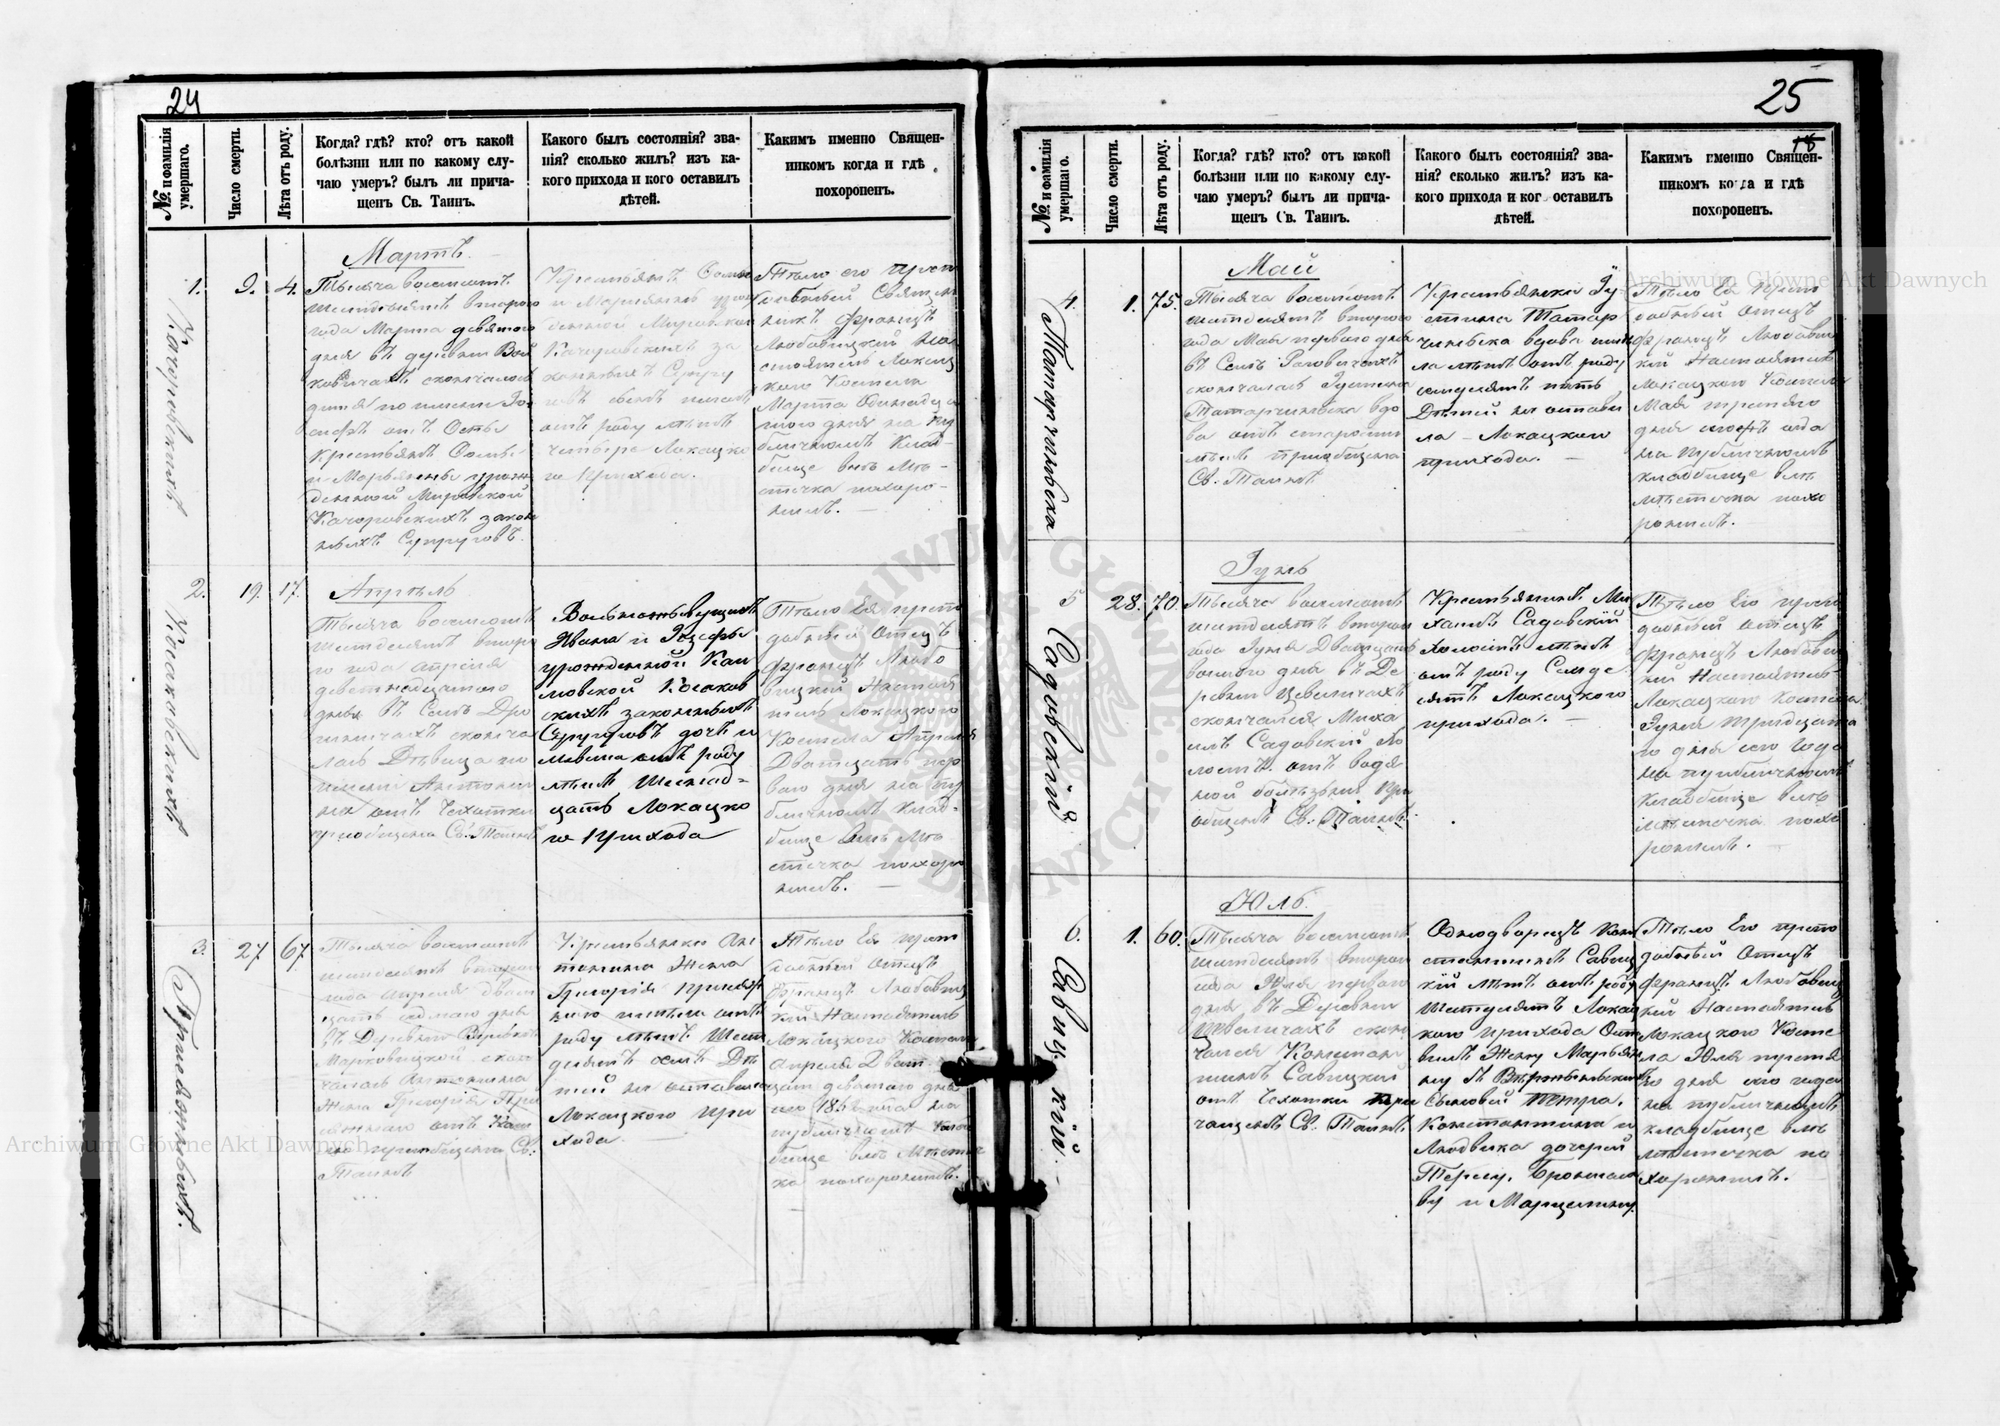 24
№ и фамилія умершаго.
Число смерти.
Лѣта отъ роду.
Когда? гдѣ? кто? отъ какой
болѣзни или по какому слу-
чаю умеръ? былъ ли прича-
щенъ Св. Таинъ.
Какого былъ состоянія? зва-
нія? сколько жилъ? изъ ка-
кого прихода и кого оставилъ
дѣтей.
Какимъ именно Священ-
никомъ когда и гдѣ
похороненъ.
1.
9.
4.
Мартъ.
Тысяча восемьсотъ
шестьдесятъ второго
года Марта девятого
дня въ деревни
скончалось
дитя по имени Іо-
сифъ отъ Оспы
Крестьянъ
и Марьянны урож-
денной Мировской
Качоровскихъ закон
ныхъ Супруговъ.
Крестьянъ
и Марьянны урож
денной Мировской
Качоровскихъ за
конныхъ Супру
говъ сынъ
отъ роду лѣтъ
четыре Локацко
го Прихода.
Тѣло его Преп
одобный Священ
никъ Францъ
Любовицкій На
стоятель Локац
кого Костела
Марта Одинадца
того дня на Пу
бличномъ Клад-
бище внѣ Мѣ-
стечка похоро-
нилъ. —
2.
Косаковская
19.
17.
Апрѣль
Тысяча восемьсотъ
шестьдесятъ второ
го года Апреля
девятнадцатого
дня въ Селѣ
сконча
лась Дѣвица по
имени Антони
на отъ Чехотки
приобщена Св. Таинъ
Ивана и Іозефы
урожденной
Косаков
скихъ законныхъ
Супруговъ дочь
отъ роду
лѣтъ
цать Локацко
го Прихода
Тѣло Ея Препо
добный Отецъ
Францъ Любо
вицкій Настоя
тель Локацкого
Костела Апреля
Двадцать пер
вого дня на Пу
бличномъ Клад-
бище внѣ Мѣ
стечка похоро
нилъ. —
3.
27
67.
Тысяча восемьсотъ
шестьдесятъ второго
года Апреля двад
цать седьмого дня
въ Деревни
скон
чалась Антонина
Жена Григорія
отъ
приобщена Св.
Таинъ
Крестьянка Ан
тонина Жена
Григорія
отъ
роду лѣтъ Шесть
десятъ семь Дѣ
тей не оставила
Локацкого При
хода.
Тѣло Ея Преп
одобный Отецъ
Францъ Любовиц
кій Настоятель
Локацкого Костела
Апреля Двад-
цать девятого дня
на
публичномъ Клад
бище внѣ Мѣстеч
ка похоронилъ.
25
№ и фамилія умершаго.
Число смерти.
Лѣта отъ роду.
Когда? гдѣ? кто? отъ какой
болѣзни или по какому слу-
чаю умеръ? былъ ли прича-
щенъ Св. Таинъ.
Какого былъ состоянія? зва-
нія? сколько жилъ? изъ ка-
кого прихода и ког оставилъ
дѣтей.
Какимъ именно Священ-
никомъ когда и гдѣ
похороненъ.
4.
Татарчинска
1.
75.
Май
Тысяча восемьсотъ
шестьдесятъ второго
года Мая первого дня
въ Селѣ
скончалась Іустина
Татарчинска вдо
ва отъ старости
приобщена
Св. Таинъ
Крестьянка Іу
стина Татар
чинска вдова
лѣтъ отъ роду
семдесятъ пять
Дѣтей не остави
ла — Локацкого
прихода. —
Тѣло Ея Препо
добный Отецъ
Францъ Любовиц
кій Настоятель
Локацкого Костела
Мая третяго
дня сего года
на Публичномъ
кладбище внѣ
мѣстечка похо
ронилъ.
5
Садовскій
28.
70.
Іунь
Тысяча восемьсотъ
шестьдесятъ второго
года Іуня Двадцать
восмого дня въ Де
ревни Цевеличахъ
скончался Миха
илъ Садовскій Хо
лостъ отъ водя
ной болѣзни При
общенъ Св. Таинъ.
Крестьянинъ Ми
хаилъ Садовскій
Холостъ лѣтъ
отъ роду Семде
сятъ Локацкого
прихода. —
Тѣло Его Препо
добный Отецъ
Францъ Любовиц
кій Настоятель
Локацкого Костела
Іуня Тридцата
го дня сего Года
на публичномъ
Кладбище внѣ
мѣстечка похо
ронилъ. —
6.
Савицкій
1.
60.
Юль.
Тысяча восемьсотъ
шестьдесятъ второго
года Юля первого
дня въ Деревни
Цевеличахъ скон
чался Констан
тинъ Савицкій
отъ Чехотки при
чащенъ Св. Таинъ
Однодворецъ Кон
стантинъ Савиц
кій лѣтъ отъ роду
Шестдесятъ Локац
кого прихода Оста
вилъ Жену Марьян
ну
сыновей Петра,
Константина и
Людвика дочерей
Терезу, Бронисла
ву и Марцелину.
Тѣло Его Препо
добный Отецъ
Францъ Любовиц
кій Настоятель
Локацкого Косте
ла Юля третя
го дня сего года
на публичномъ
кладбище внѣ
мѣстечка по
хоронилъ.
Archiwum Główne Akt Dawnych
Archiwum Główne Akt Dawnych